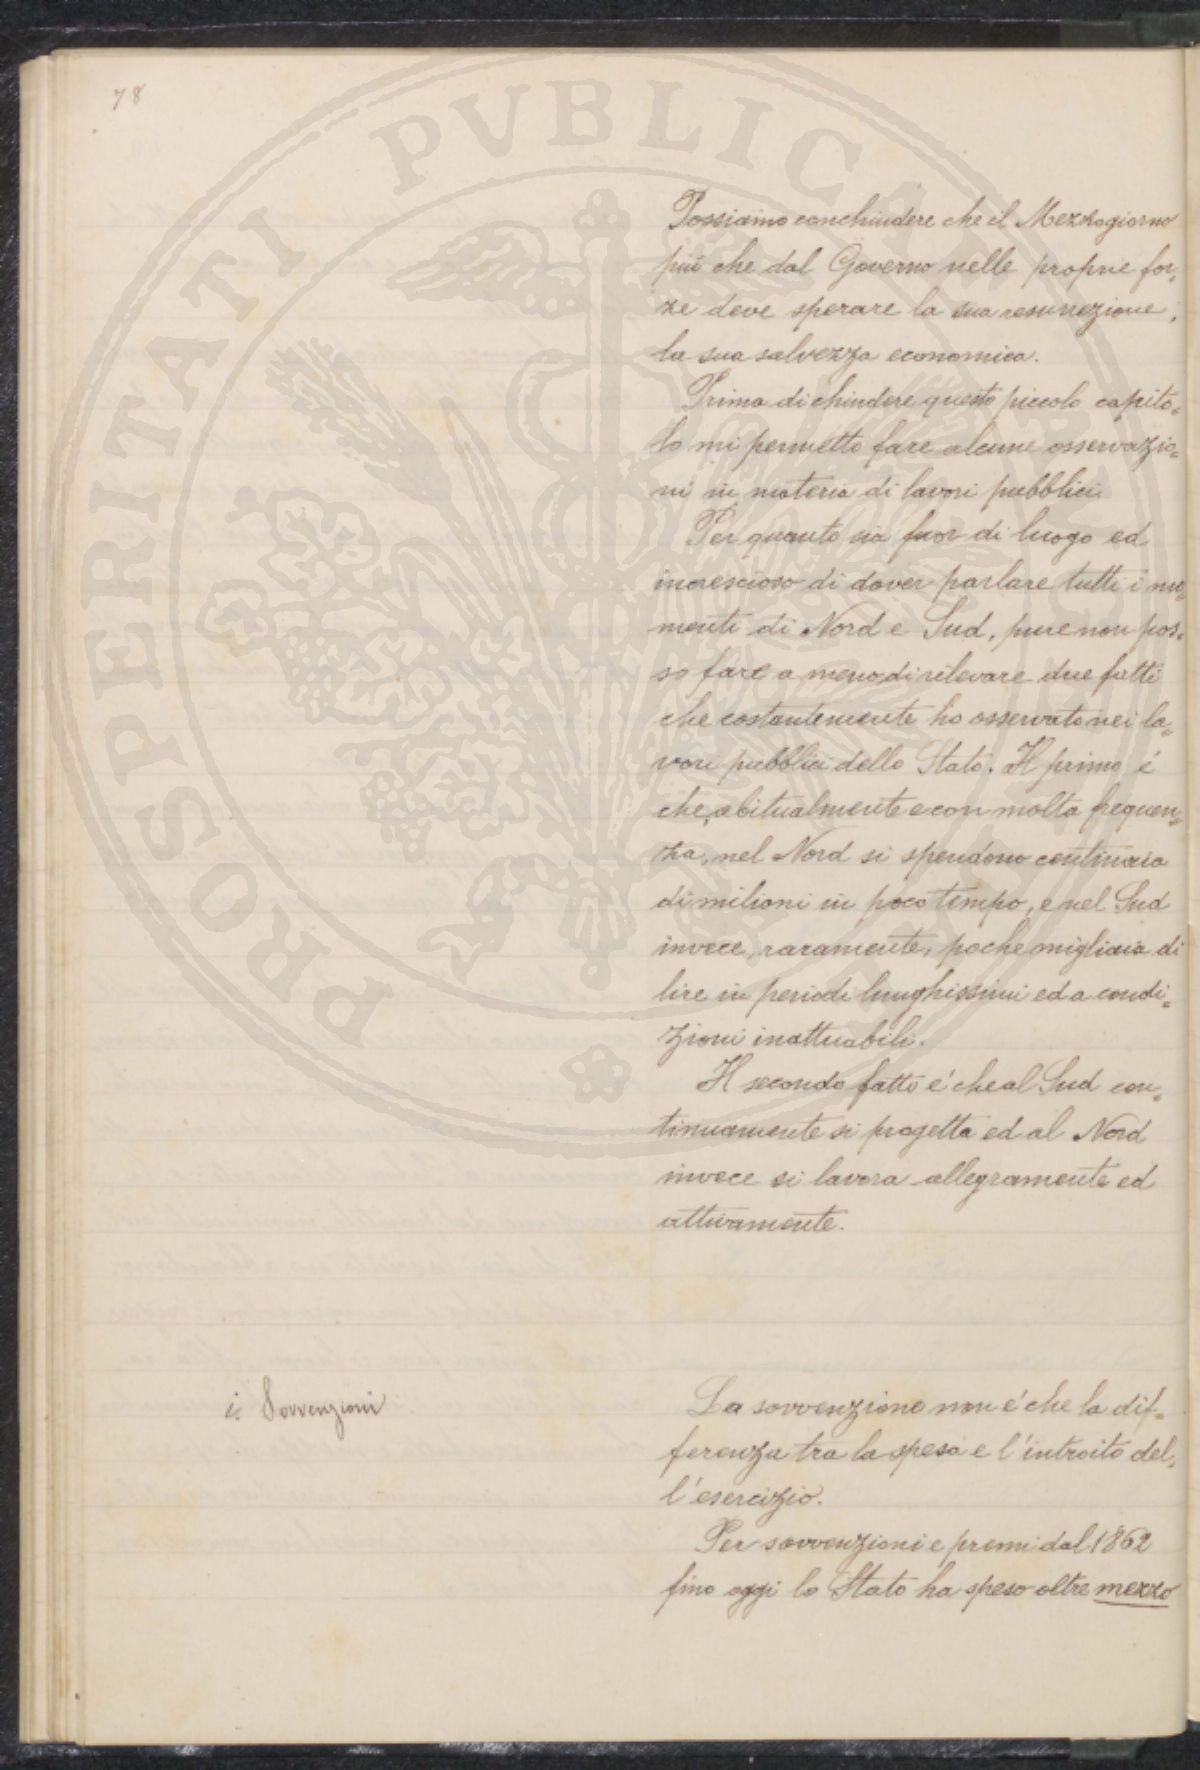 78
Possiamo conchiudere che il Mezzogiorno
più che dal Governo nelle proprie for=
ze deve sperare la sua resurrezione,
la sua salvezza economica.
Prima di chiudere questo piccolo capito=
lo mi permetto fare alcune osservazio=
ni in materia di lavori pubblici.
Per quanto sia fuor di luogo ed
increscioso di dover parlare tutti i mo=
menti di Nord e Sud, pure non pos=
so fare a meno di rilevare due fatti
che costantemente ho osservato nei la=
vori pubblici dello Stato. Il primo é
che, abitualmente e con molta frequen=
za, nel Nord si spendono centinaia
di milioni in poco tempo, e nel Sud
invece, raramente, poche migliaia di
lire in periodi lunghissimi ed a condi=
zioni inattuabili.
Il secondo fatto e' che al Sud con=
tinuamente si progetta ed al Nord
invece si lavora allegramente ed
attivamente.
i. Sovvenzioni
La sovvenzione non e' che la dif=
ferenza tra la spesa e l'introito del=
l'esercizio.
Per sovvenzioni e premi dal 1862
fino oggi lo Stato ha speso oltre mezzo
PROSPERITATI PVBLICAE